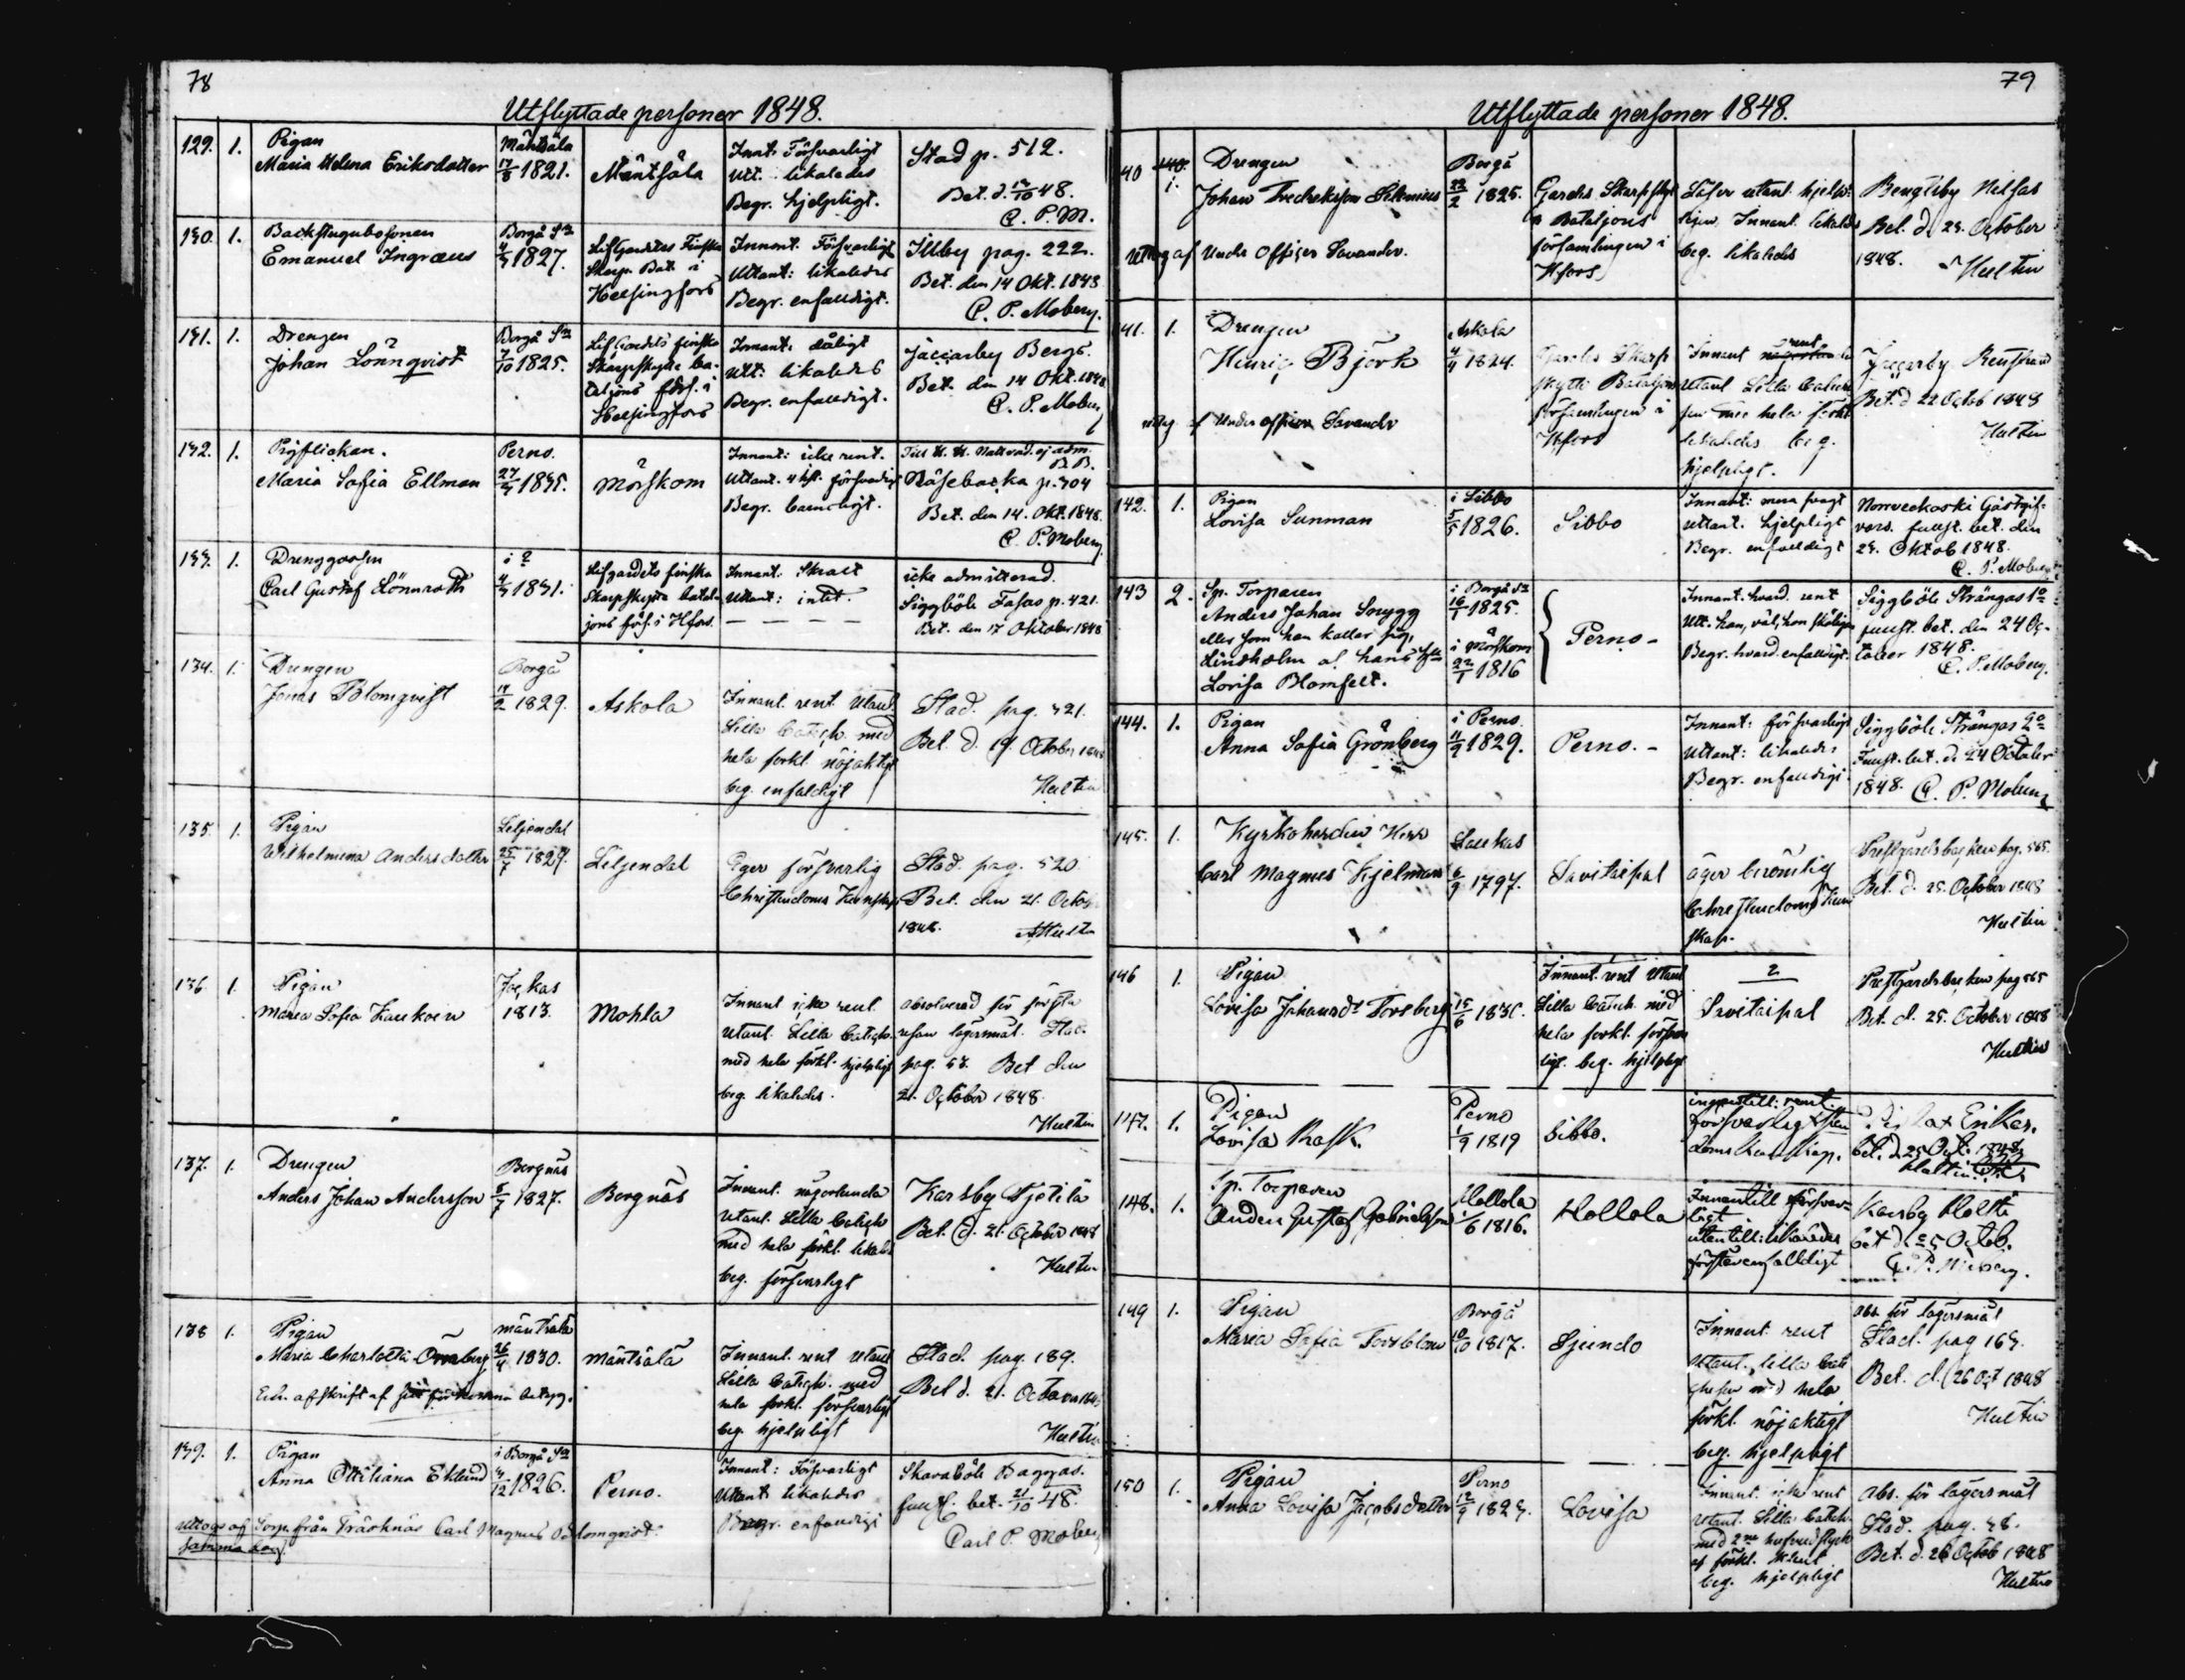 78
Utflyttade personer 1848.
129. 1. Pigan
Maria Helena Eriksdotter
Mäntsälä
17/8 1821.
Mäntsälä
Innt. Försvarligt
Utt. likaledes
Begr. hjelpligt.
Stad p. 512.
Bet. d. 13/10 48.
C. P. M.
130. 1. Backstugubosonen
Emanuel Ingraeus
Borgå Sn
4/3 1827.
Lifgardets Finska
Skarps. Bat. i
Helsingfors
Innant. Försvarligt
Utant: likaledes
Begr. enfaldigt.
Illby pag. 222.
Bet. den 14 Okt. 1848
C. P. Moberg.
131. 1. Drengen
Johan Lönnqvist
Borgå Sn
7/10 1825.
Lif Gardets finska
Skarpskytte ba-
taljons förs. i
Helsingfors
Innant. dåligt
Utt: likaledes
Begr. enfalldigt.
Jaccarby Bergs.
Bet. den 14 Okt. 1848
C. P. Moberg
132. 1. Pigflickan.
Maria Sofia Ellman
Perno.
27/3 1835.
Mörskom
Innant: icke rent.
Utant. 4 hft. försvarligt
Begr. barnsligt.
Till H. H. Nattvard ej adm.
Näsebacka p. 304
Bet. den 14. Okt. 1848.
C. P. Moberg.
133. 1. Drenggossen
Carl Gustaf Lönnroth
i ?
4/3 1831.
Lifgardets finska
Skarpskytte batal-
jons förs. i Hfors.
Innant. Skralt
Utant: intet.
icke admitterad.
Siggböle Fasas p. 421.
Bet. den 17 Oktober 1848
134. 1. Drengen
Jonas Blomqvist
Borgå
14/2 1829.
Askola
Innant. rent Utant
Lilla Catech. med
hela forkl. nöjaktigt
beg. enfaldigt
Stad. pag. 321.
Bet. d. 19. October 1848
Hultin
135. 1. Pigan
Wilhelmina Andersdotter
Liljendal
25/7 1829.
Liljendal
Eger försvarlig
Christendoms Kunskap
Stad. pag. 520
Bet. den 21. Octob
1848. Hultin
136. 1. Pigan
Maria Sofia Kaukoin
Jackas
1813.
Mohla
Innant icke rent
Utant. Lilla Catech.
med hela förkl. hjelpligt
beg. likaledes.
absolverad för första
resan lägersmål. Stad.
pag. 53. Bet den
21. October 1848.
Hultin
137. 1. Drengen
Anders Johan Andersson
Borgnäs
5/7 1827.
Borgnäs
Innant. någorlunda
Utant. Lilla Catech
med hela förkl. likal.
beg. försvarligt
Karsby Sjetilä
Bet. d. 21. October 1848
Hultin
138 1. Pigan
Maria Charlotta Örnberg
Mäntsälä
26/4 1830.
Mäntsälä
Innant. rent Utant
Lilla Catech. med
hela forkl. försvarligt
beg. hjelpligt
Stad. pag. 189.
Bet d. 21. October 1848
Hultin
139. 1. Pigan
Anna Ottiliana Eklund
i Borgå Sn
3/12 1826.
Perno.
Innant: Försvarligt
Utant likaledes
Begr. enfaldigt
Skavaböle Baggas.
bet. 21/10 48.
Carl P. Moberg
Uttogs af Torp. från Träsknäs Carl Magnus Blomqvist.
samma dag.
79
Utflyttade personer 1848.
140. 1. Drengen
Johan Fredriksson Silenius
Borgå
22/2 1825.
Gardes Skarpskyt
Bataljons
församlingen i
Hfors
Läser utant. hjelp-
ligen, Innant. likaledes
beg. likaledes
Bengtsby Nissas
Bet. d. 23. October
1848. Hultin
Uttog af Under Officer Savander.
141. 1. Drengen
Henric Björk
Askola
4/4 1824.
Gardes Skarp
skytte Bataljons
församlingen i
Hfors
Innant rent
Utant Lilla Cateche
sen med hela förkl
likaledes beg.
hjelpligt.
Jaccarby
Bet. d 22 Octob 1848
Hultin
Under officer Savander
142. 1. Pigan
Lovisa Sunman
i Sibbo
5/5 1826.
Sibbo
Innant: svagt
Utant. hjelpligt
Begr. enfalldigt
Norrveckoski Gästgif-
vars. bet. den
23. Oktob 1848.
C. P. Moberg
143 2. Sp. Torparen
Anders Johan Snygg
eller som han kallar sig,
Lindholm o. hans
Lovisa Blomfelt.
i Borgå Sn
16/7 1825.
i Mörskom
22/1 1816
Perno-
Innant. hvard. rent
Utt. han, väl, hon
Begr. hvard. enfalldigt.
Siggböle Strångas 1o
bet. den 24 Oc-
tober 1848.
C. P. Moberg.
144. 1. Pigan
Anna Sofia Grönberg
i Perno.
11/9 1829.
Perno. -
Innant: försvarligt
Utant: likaledes
Begr. enfalldigt
Siggböle Strångas 2o
bet. d 24 October
1848. C. P. Moberg
145. 1. Kyrkoherden Herr
Carl Magnus Hjelman
Laukas
6/9 1797.
Savitaipal
äger berömlig
Christendoms Kun
skap.
Prestgårdsbacken pag. 565.
Bet. d. 25. October 1848
Hultin
146 1. Pigan
Lovisa Johansdr Forsberg
15/6 1830.
Innant. rent Utant
Lilla Catech. med
hela forkl. försvar
ligt. beg. hjelpligt
Savitaipal
Prestgårdsbacken pag 565
Bet. d. 25. October 1848
Hultin
147. 1. Pigan
Lovisa Rask.
Perno
1/9 1819
Sibbo.
försvarlig
doms kunskap.
Erikas.
bet. d. 25 Oct. 1848
Hultin
148. 1. Sp. Torparen
Anders Gustaf Gabrielsson
Hollola
1/6 1816.
Hollola
Innantill försvar-
ligt
utantill: likaledes
förstår enfalldigt
Karsby Holtti
bet d 25 Octob.
C. P. Moberg.
149 1. Pigan
Maria Sofia Forsblom
Borgå
10/10 1817.
Sjundo
Innant. rent
Utant. lilla Cate
chesen med hela
förkl. nöjaktigt
beg. hjelpligt
abs. för lägersmål
Stad. pag 163.
Bet. d. 26 Oct 1848
Hultin
150 1. Pigan
Anna Lovisa Jacobsdotter
Perno
12/9 1823.
Lovisa
Innant. icke rent
Utant. Lilla Catech.
med 2ne hufvudstyck
af förkl.
beg. hjelpligt
abs. för lägersmål
Stad. pag. 38.
Bet. d. 26 Octob 1848
Hultin